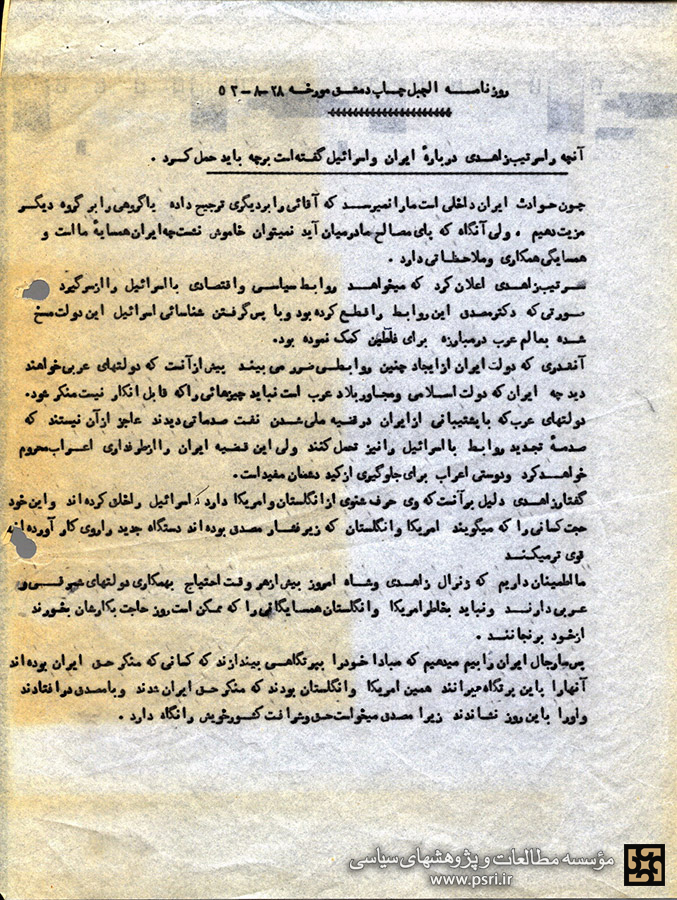 روزنامه الجبل چاپ دمشق مورخه ۲۸-۸-۵۳
آنچه را سرتیپ زاهدی دربارهٔ ایران و اسرائیل گفته است برچه باید حمل کرد .
چون حوادث ایران داخلی است ما را نمیرسد که آقائی را بردیگری ترجیح داده یا گروهی را بر گروه دیگر
مزیت دهیم . ولی آنگاه که پای مصالح ما در میان آید نمیتوان خاموش نشست چه ایران همسایهٔ ما است و
همسایگی همکاری و ملاحظاتی دارد .
سرتیپ زاهدی اعلان کرد که میخواهد روابط سیاسی و اقتصادی با اسرائیل را از سر گیرد
صورتی که دکتر مصدق این روابط را قطع کرده بود و با پس گرفتن شناسائی اسرائیل این دولت مسخ
شده بعالم عرب در مبارزه برای فلسطین کمک نموده بود.
آنقدری که دولت ایران از ایجاد چنین روابطی ضرر می بیند بیش از آنست که دولتهای عربی خواهند
دید چه ایران که دولت اسلامی و مجاور بلاد عرب است نباید چیزهائی را که قابل انکار نیست منکر شود.
دولتهای عرب که با پشتیبانی از ایران در قضیه ملی شدن نفت صدماتی دیدند عاجز از آن نیستند که
صدمهٔ تجدید روابط با اسرائیل را نیز تحمل کنند ولی این قضیه ایران را از طرفداری اعراب محروم
خواهد کرد و دوستی اعراب برای جلوگیری از کید دشمنان مفید است.
گفتار زاهدی دلیل بر آنست که وی حرف شنوی از انگلستان و امریکا دارد که اسرائیل را خلق کرده اند و این خود
حجت کسانی را که میگویند امریکا و انگلستان که زیر فشار مصدق بوده اند دستگاه جدید را روی کار آورده اند
قوی تر میکند
ما اطمینان داریم که ژنرال زاهدی و شاه امروز بیش از هر وقت احتیاج بهمکاری دولتهای شرقی و
عربی دارند و نباید بخاطر امریکا و انگلستان همسایگانی را که ممکن است روز حاجت بکارشان بخورند
از خود برنجانند .
پس ما رجال ایران را بیم میدهیم که مبادا خود را بپرتگاهی بیندازند که کسانی که منکر حق ایران بوده اند
آنها را باین پرتگاه میرانند همین امریکا و انگلستان بودند که منکر حق ایران شدند و با مصدق در افتادند
و او را باین روز نشاندند زیرا مصدق میخواست حق و شرافت کشور خویش را نگاه دارد .
مؤسسه مطالعات و پژوهشهای سیاسی
www.psri.ir